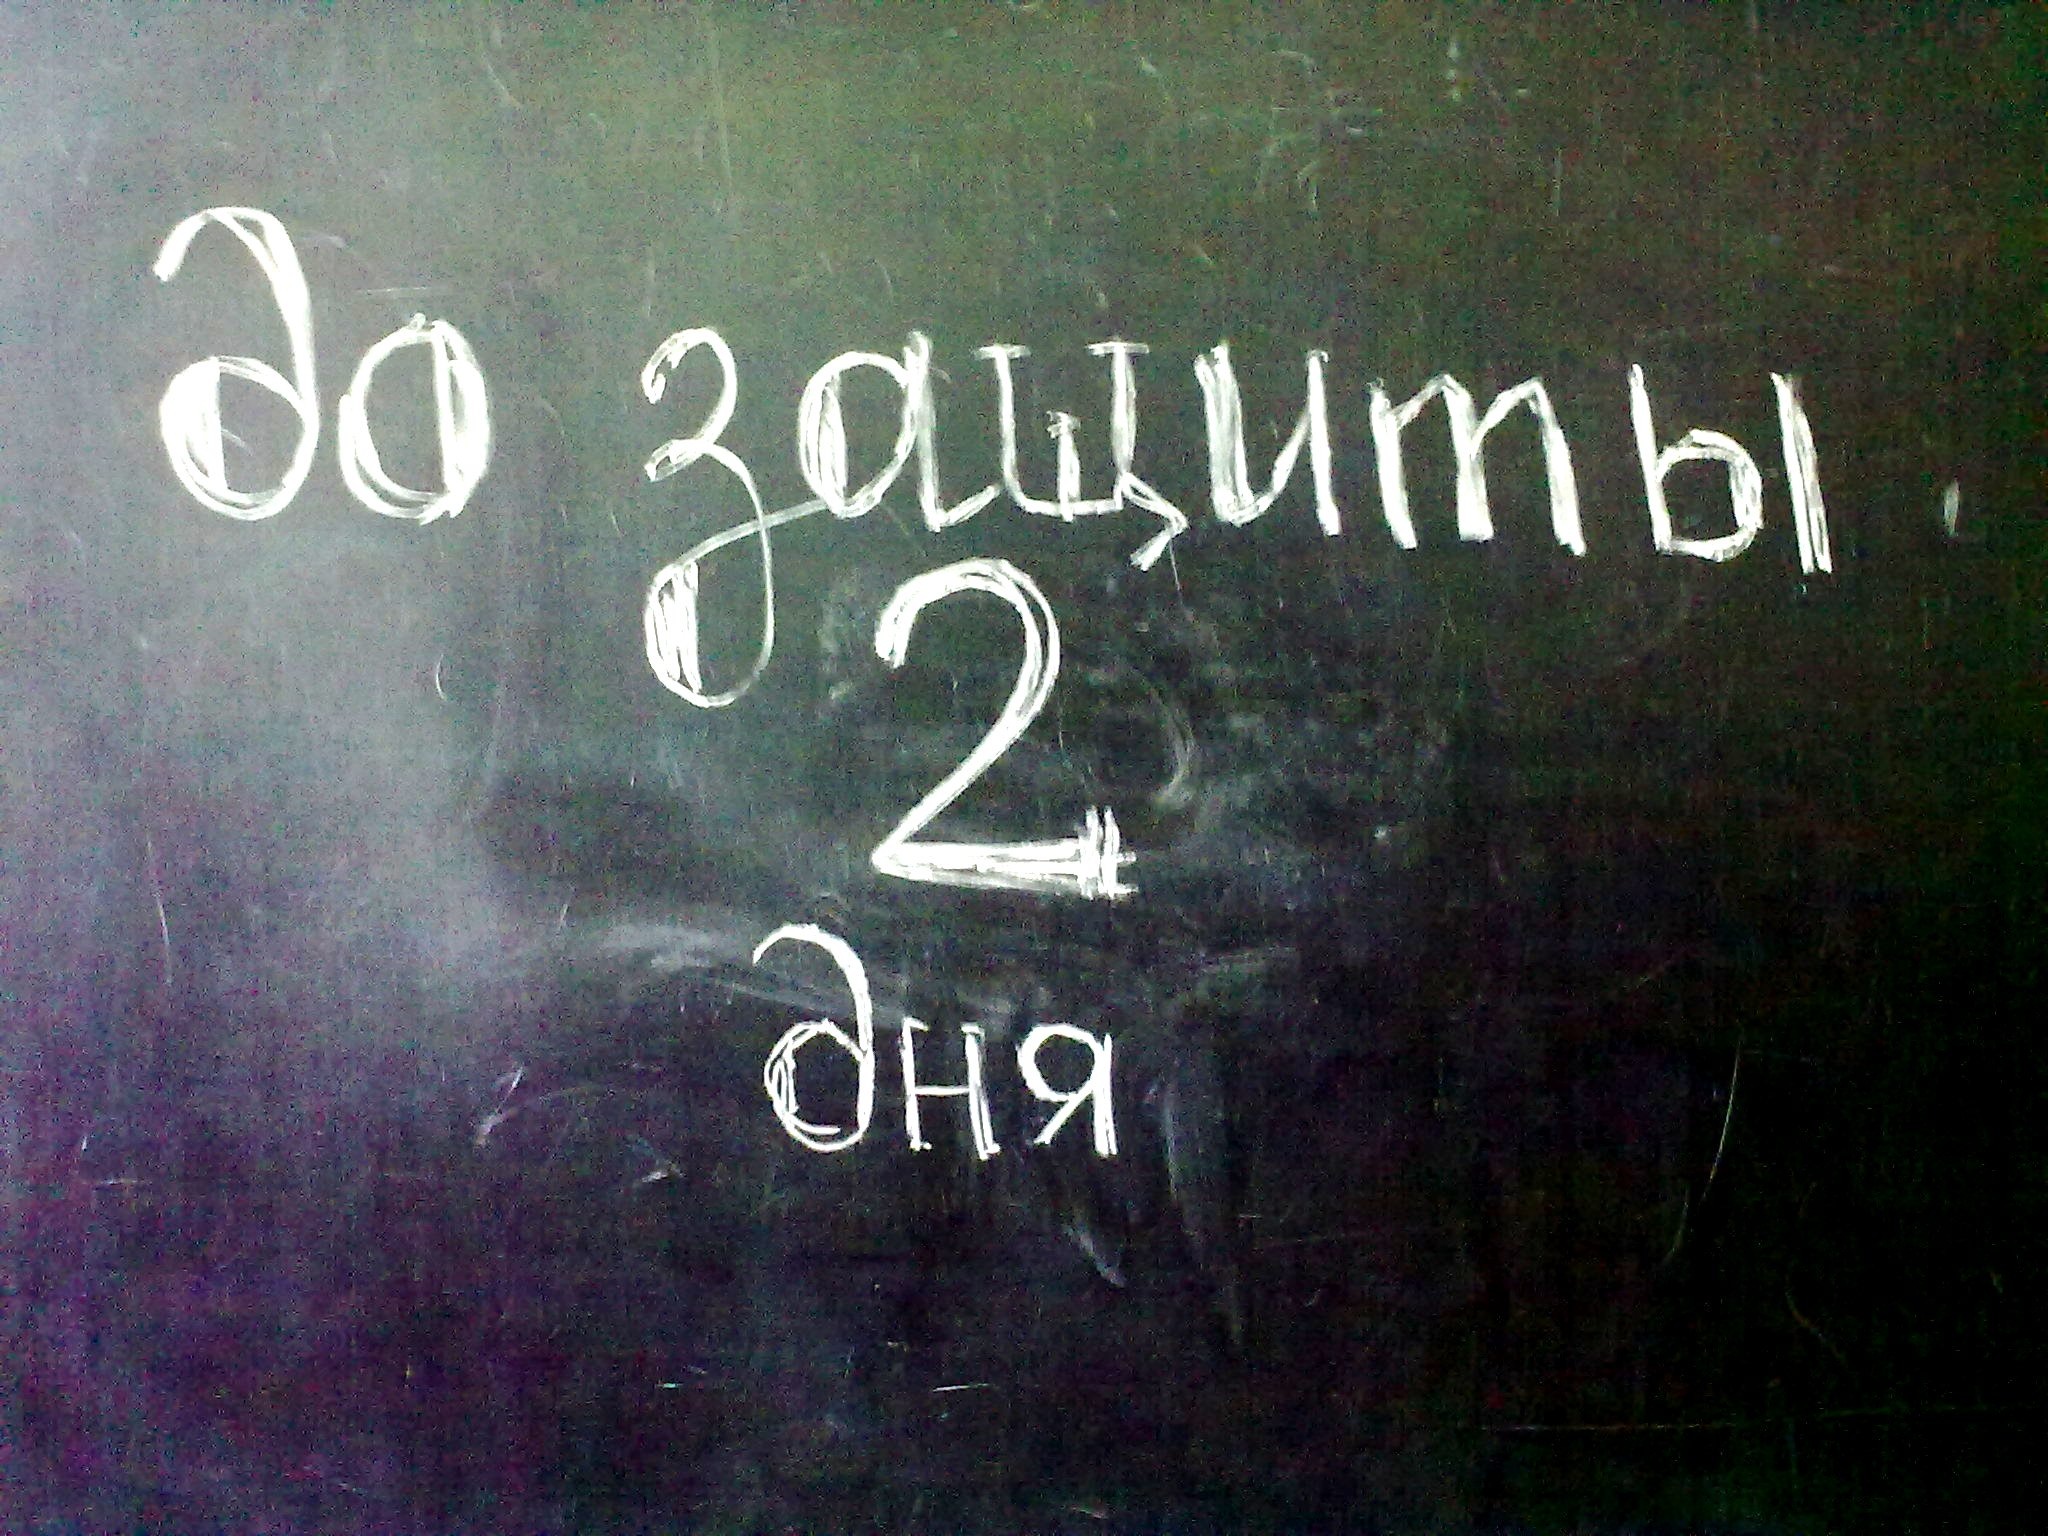 до защиты
2
дня